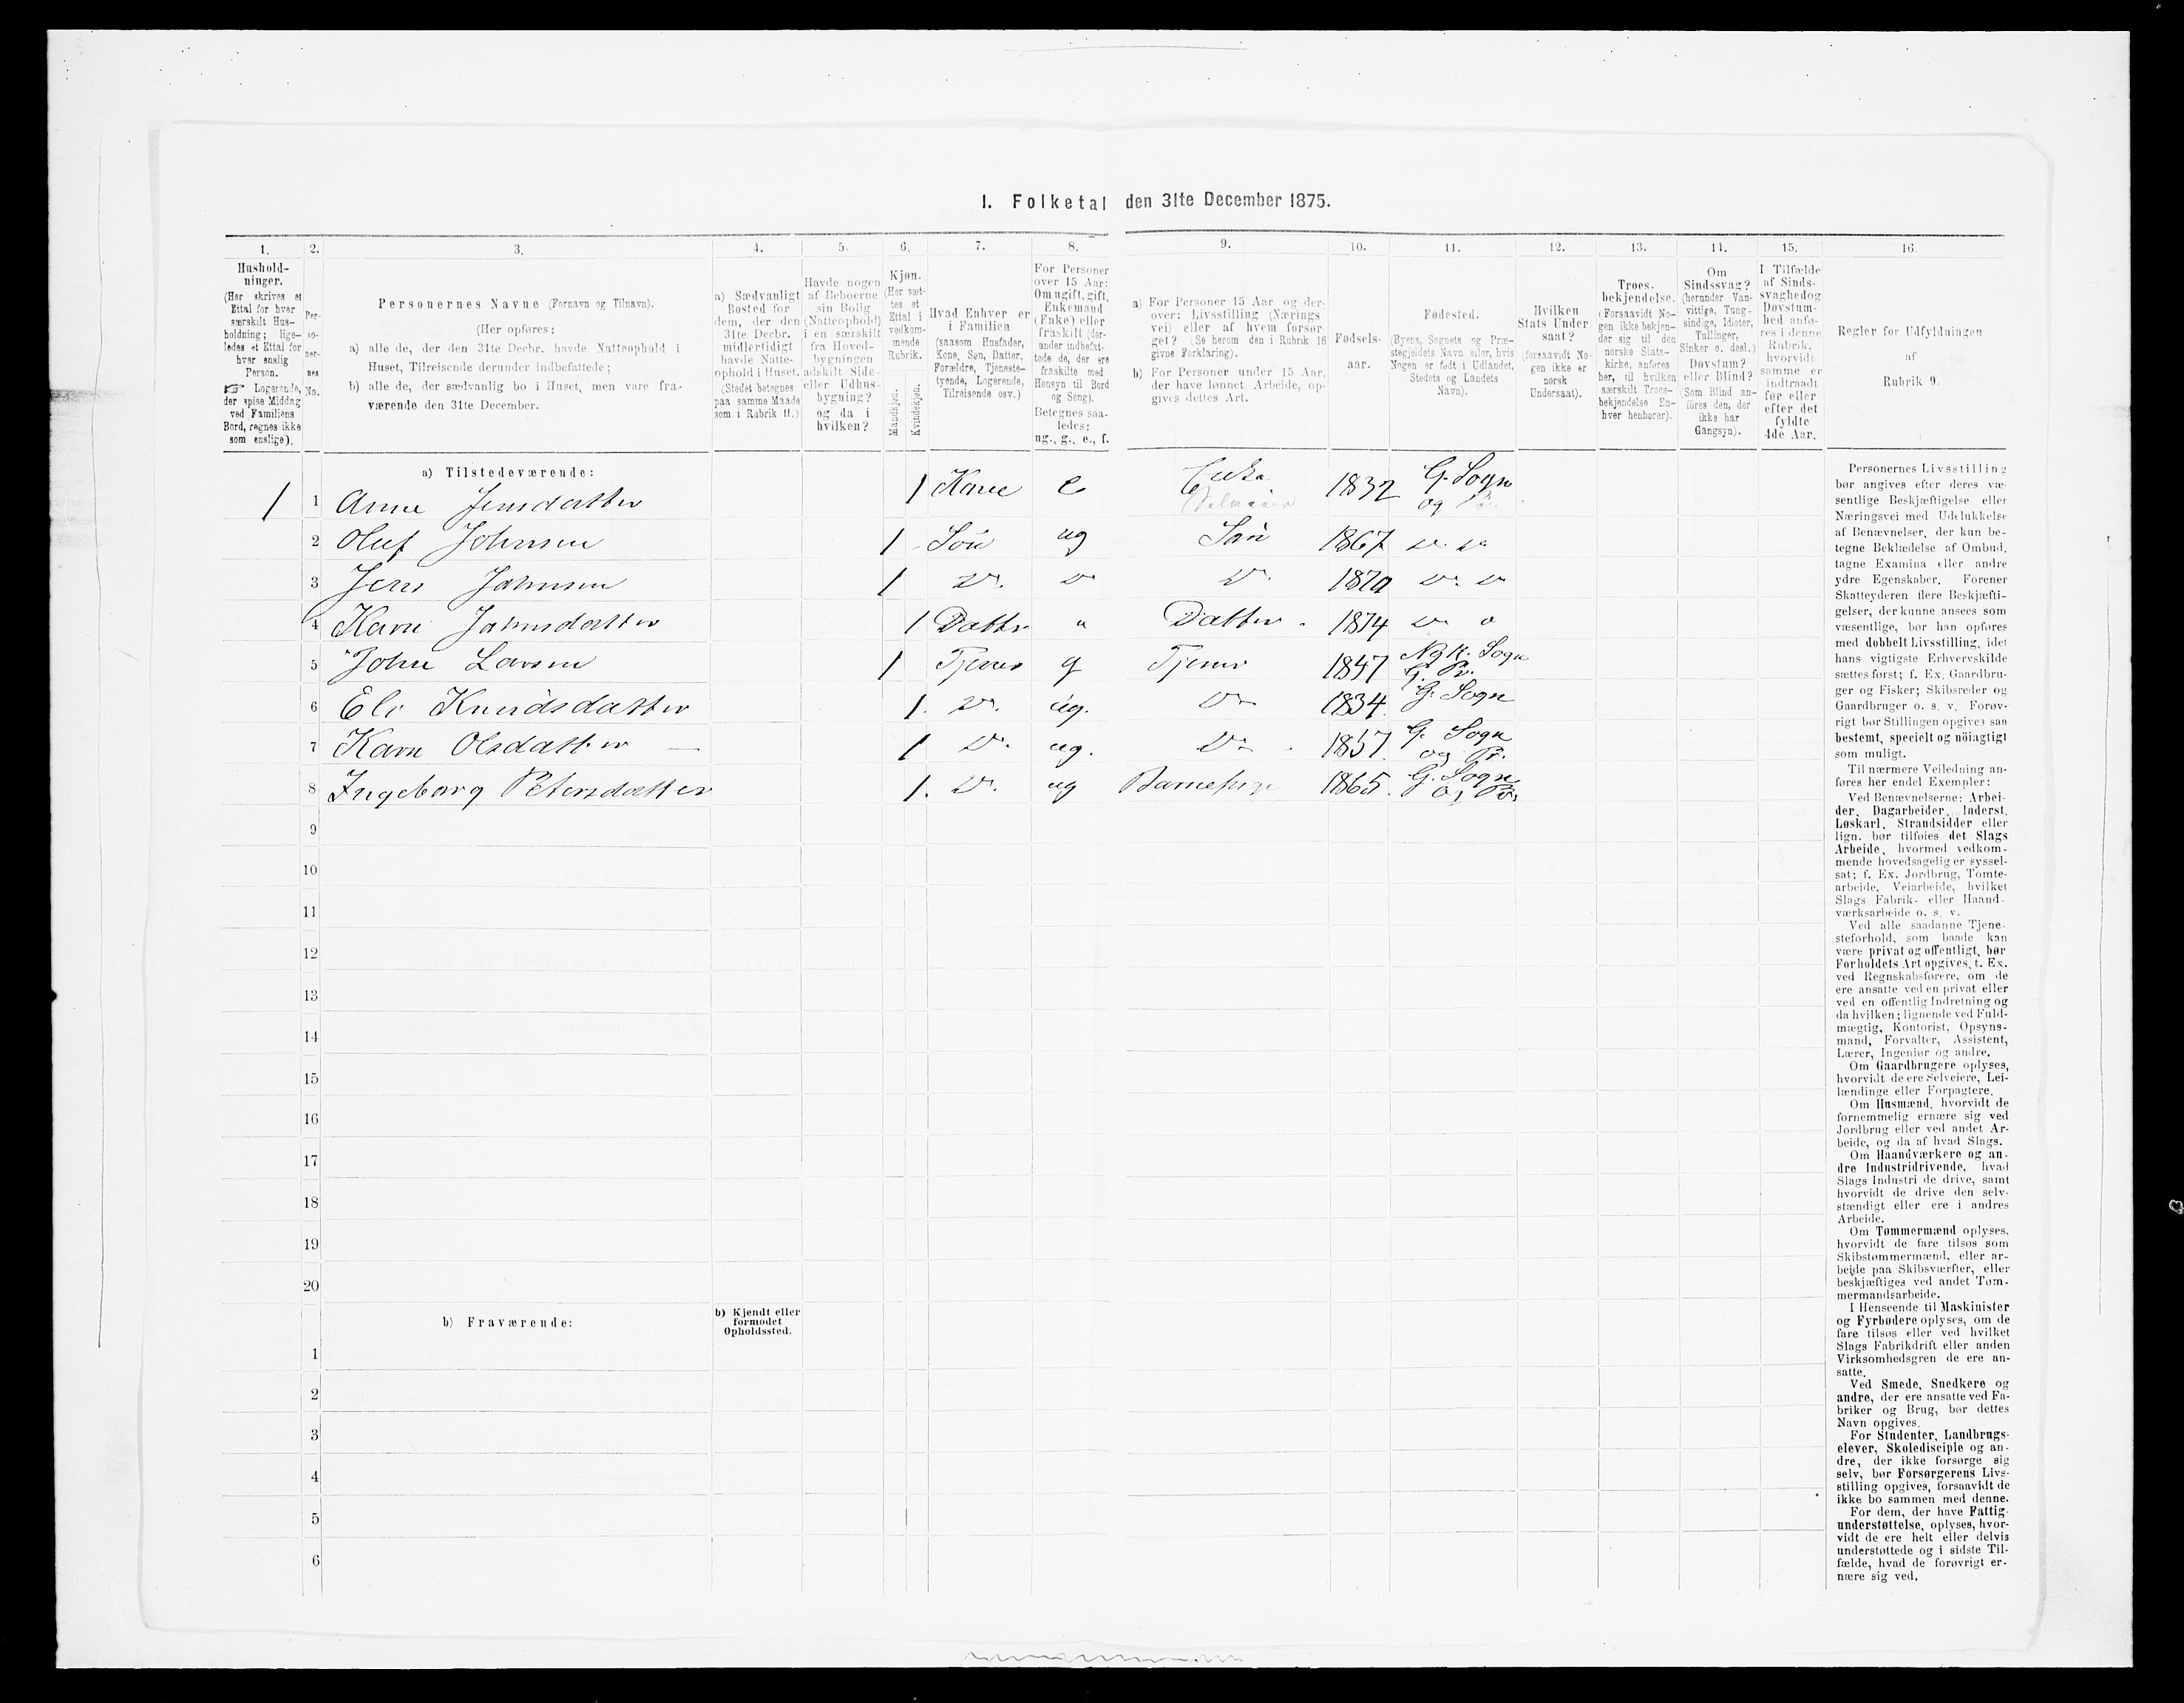 I. Folketal den 31te December 1875.
1. 2. 3. 4. 5. 6. 7. 8. 9. 10. 11. 12. 13. 14. 15. 16.
Hushold-
ninger.
(Her skrives et
Ettal for hver
særskilt Hus-
holdning; lige-
ledes et Ettal for
hver enslig
Person.
☞ Logerende,
der spise Middag
ved Familiens
Bord, regnes ikke
som enslige).
Per-
so-
ner-
nes
No.
Personernes Navne (Fornavn og Tilnavn).
(Her opføres:
a) alle de, der den 31te Decbr. havde Natteophold i
Huset, Tilreisende derunder indbefattede;
b) alle de, der sædvanlig bo i Huset, men vare fra-
værende den 31te December.
a) Sædvanligt
Bosted for
dem, der den
31te Decbr.
midlertidigt
havde Natte-
ophold i Huset.
(Stedet betegnes
paa samme Maade
som i Rubrik 11.)
Havde nogen
af Beboerne
sin Bolig
(Natteophold)
i en særskilt
fra Hoved-
bygningen
adskilt Side-
eller Udhus-
bygning?
og da i
hvilken?
Kjøn.
(Her sæt-
tes et
Ettal i
vedkom-
mende
Rubrik.
Mandkjøn.
Kvindekjøn.
Hvad Enhver er
i Familien
(saasom Husfader,
Kone, Søn, Datter,
Forældre, Tjeneste-
tyende, Logerende,
Tilreisende osv.)
For Personer
over 15 Aar:
Om ugift, gift,
Enkemand
(Enke) eller
fraskilt (der-
under indbefat-
tede de, der ere
fraskilte med
Hensyn til Bord
og Seng).
Betegnes saa-
ledes:
ug., g., e., f.
a) For Personer 15 Aar og der-
over: Livsstilling (Nærings-
vei) eller af hvem forsør-
get? (Se herom den i Rubrik 16
givne Forklaring).
b) For Personer under 15 Aar,
der have lønnet Arbeide, op-
gives dettes Art.
Fødsels-
aar.
Fødested.
(Byens, Sognets og Præ-
stegjeldets Navn eller, hvis
Nogen er født i Udlandet,
Stedets og Landets
Navn).
Hvilken
Stats Under
saat?
(forsaavidt No-
gen ikke er
norsk
Undersaat).
Troes-
bekjendelse.
(Forsaavidt No-
gen ikke bekjen-
der sig til den
norske Stats-
kirke, anføres
her, til hvilken
særskilt Troes-
bekjendelse En-
hver henhører).
Om
Sindssvag?
(herunder Van-
vittige, Tung-
sindige, Idioter,
Tullinger,
Sinker o. desl.)
Døvstum?
eller Blind?
(Som Blind an-
føres den, der
ikke har
Gangsyn).
I Tilfælde
af Sinds-
svaghed og
Døvstum-
hed anfø-
res i denne
Rubrik,
hvorvidt
samme er
indtraadt
før eller
efter det
fyldte
4de Aar.
Regler for Udfyldningen
af
Rubrik 9.
a) Tilstedeværende:
1 1 Anne Jensdatter 1 Kone e Enke 1832 G. Sogn
og Pr.
2 Oluf Johnsen 1 Sön ug Sön 1867 do. do
3 Jens Johnsen 1 do. do do. 1870 do. do
4 Kari Johnsdatter 1 Datter " Datter 1874 do "
5 John Larsen 1 Tjener g Tjener 1847 Sogn
G. Pr.
6 Eli Knudsdatter 1. do. ug. do 1834 G. Sogn
7 Kari Olsdatter 1 do. ug. do 1857 G. Sogn
og Pr.
8 Ingeborg Petersdatter 1. do. ug Barnepige 1865. G. Sogn
og Pr.
9
10
11
12
13
14
15
16
17
18
19
20
b) Fraværende:
b) Kjendt eller
formodet
Opholdssted.
1
2
3
4
5
6
Personernes Livsstilling
bør angives efter deres væ-
sentlige Beskjæftigelse eller
Næringsvei med Udelukkelse
af Benævnelser, der kun be-
tegne Beklædelse af Ombud,
tagne Examina eller andre
ydre Egenskaber. Forener
Skatteyderen flere Beskjæfti-
gelser, der kunne ansees som
væsentlige, bør han opføres
med dobbelt Livsstilling, idet
hans vigtigste Erhvervskilde
sættes først; f. Ex. Gaardbru-
ger og Fisker; Skibsreder og
Gaardbruger o. s. v. Forøv-
rigt bør Stillingen opgives saa
bestemt, specielt og nöiagtigt
som muligt.
Til nærmere Veiledning an-
føres her endel Exempler:
Ved Benævnelserne: Arbei-
der, Dagarbeider, Inderst,
Løskarl, Strandsidder eller
lign. bør tilføies det Slags
Arbeide, hvormed vedkom-
mende hovedsagelig er syssel-
sat; f. Ex. Jordbrug, Tomte-
arbeide, Veiarbeide, hvilket
Slags Fabrik- eller Haand-
værksarbeide o. s. v.
Ved alle saadanne Tjene-
steforhold, som baade kan
være privat og offentligt, bør
Forholdets Art opgives, t. Ex.
ved Regnskabsførere, om de
ere ansatte ved en privat eller
ved en offentlig Indretning og
da hvilken; lignende ved Fuld-
mægtig, Kontorist, Opsyns-
mand, Forvalter, Assistent,
Lærer, Ingeniør og andre.
Om Gaardbrugere oplyses,
hvorvidt de ere Selveiere, Lei-
lændinge eller Forpagtere.
Om Husmænd, hvorvidt de
fornemmelig ernære sig ved
Jordbrug eller ved andet Ar-
beide, og da af hvad Slags.
Om Haandværkere og an-
dre Industridrivende, hvad
Slags Industri de drive, samt
hvorvidt de drive den selv-
stændigt eller ere i andres
Arbeide.
Om Tømmermænd oplyses,
hvorvidt de fare tilsøs som
Skibstømmermænd, eller ar-
beide paa Skibsværfter, eller
beskjæftiges ved andet Tøm-
mermandsarbeide.
I Henseende til Maskinister
og Fyrbødere oplyses, om de
fare tilsøs eller ved hvilket
Slags Fabrikdrift eller anden
Virksomhedsgren de ere an-
satte.
Ved Smede, Snedkere og
andre, der ere ansatte ved Fa-
briker og Brug, bør dettes
Navn opgives.
For Studenter, Landbrugs-
elever, Skoledisciple og an-
dre, der ikke forsørge sig
selv, bør Forsørgerens Livs-
stilling opgives, forsaavidt de
ikke bo sammen med denne.
For dem, der have Fattig-
understøttelse, oplyses, hvor-
vidt de ere helt eller delvis
understøttede og i sidste Til-
fælde, hvad de forøvrigt er-
nære sig ved.